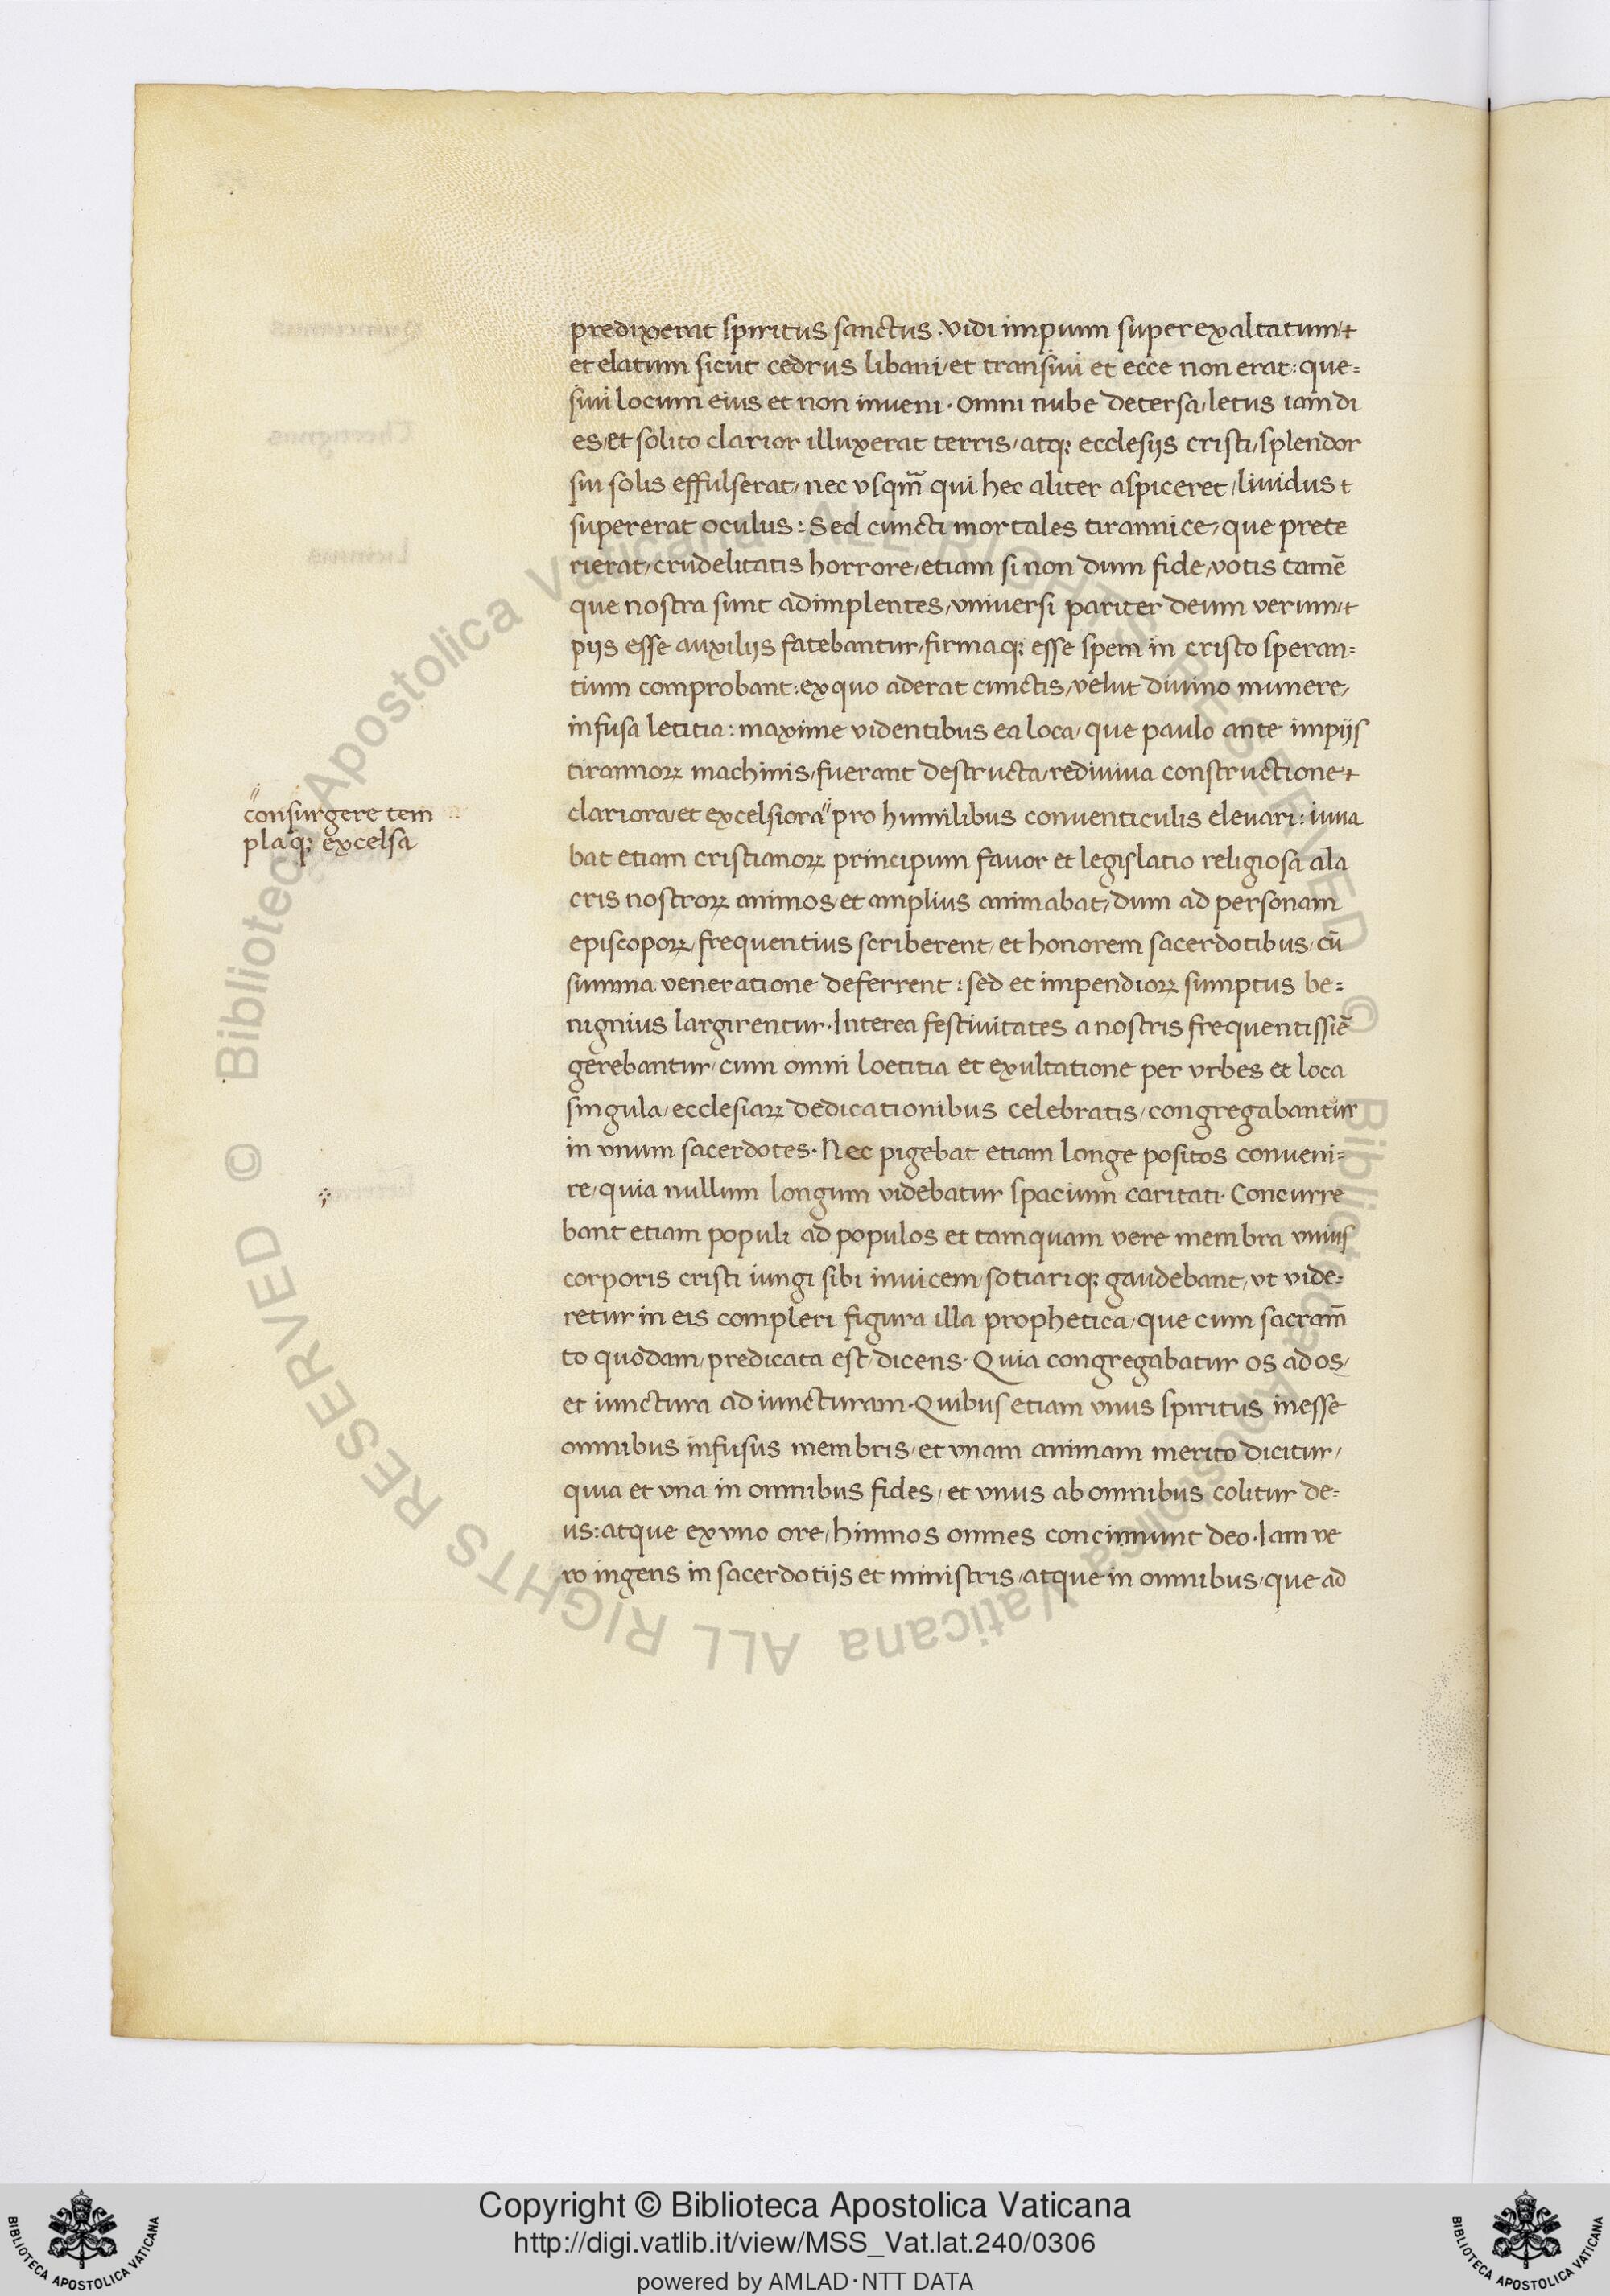 predixerat spiritus sanctus · vidi impium super exaltatum
et elatum sicut cedrus libani, et transivi et ecce non erat: que=
sivi locum eius et non inveni · omni nube detersa, letus iam di
es, et solito clarior illuxerat terris, atq; ecclesijs cristi, splendor
sui solis effulserat, nec vsqm̄ qui hec aliter aspiceret, liuidus
supererat oculus: Sed cuncti mortales tirannice, que prete
rierat, crudelitatis horrore, etiam si non dum fide, votis tamē
que nostra sunt adimplentes, vniversi pariter deum verum
pijs esse auxilijs fatebantur, firmaq; esse spem in cristo speran=
tium comprobant: ex quo aderat cunctis, velut diuino munere,
infusa letitia: maxime videntibus ea loca, que paulo ante impijs
tirannoꝝ machinis, fuerant destructa, rediuiua constructione
clariora, et excelsiora" pro humilibus conventiculis elevari: iuua
"
consurgere tem
plaq; excelsa
bat etiam cristianoꝝ principum favor et legislatio religiosa ala
cris nostroꝝ animos, et amplius animabat, dum ad personam
episcopoꝝ, frequentius scriberent, et honorem sacerdotibus, cū
summa veneratione deferrent: sed et impendioꝝ sumptus be=
nignius largirentur · Interea festivitates a nostris frequentissiē
gerebantur, cum omni loetitia et exultatione per vrbes et loca
singula, ecclesiaꝝ dedicationibus celebratis, congregabantur
in vnum sacerdotes · Nec pigebat etiam longe positos conveni=
re, quia nullum longum videbatur spacium caritati · Concurre
bant etiam populi ad populos et tamquam vere membra vnius
corporis cristi iungi sibi invicem, sotiariq; gaudebant, vt vide=
retur in eis compleri figura illa prophetica, que cum sacram̄
to quodam, predicata est, dicens · Quia congregabatur os ad os,
et iunctura ad iuncturam · Quibus etiam vnus spiritus inesse
omnibus infusus membris, et vnam animam merito dicitur,
quia et vna in omnibus fides, et vnus ab omnibus colitur de=
us: atque ex vno ore, himnos omnes concinnunt deo · Iam ve
ro ingens in sacerdotijs et ministris, atque in omnibus, que ad
© Biblioteca Apostolica Vaticana ALL RIGHTS RESERVED © Biblioteca Apostolica Vaticana ALL RIGHTS RESERVED
Copyright © Biblioteca Apostolica Vaticana
http://digi.vatlib.it/view/MSS_Vat.lat.240/0306
powered by AMLAD·NTT DATA
BIBLIOTECA APOSTOLICA VATICANA
BIBLIOTECA APOSTOLICA VATICANA